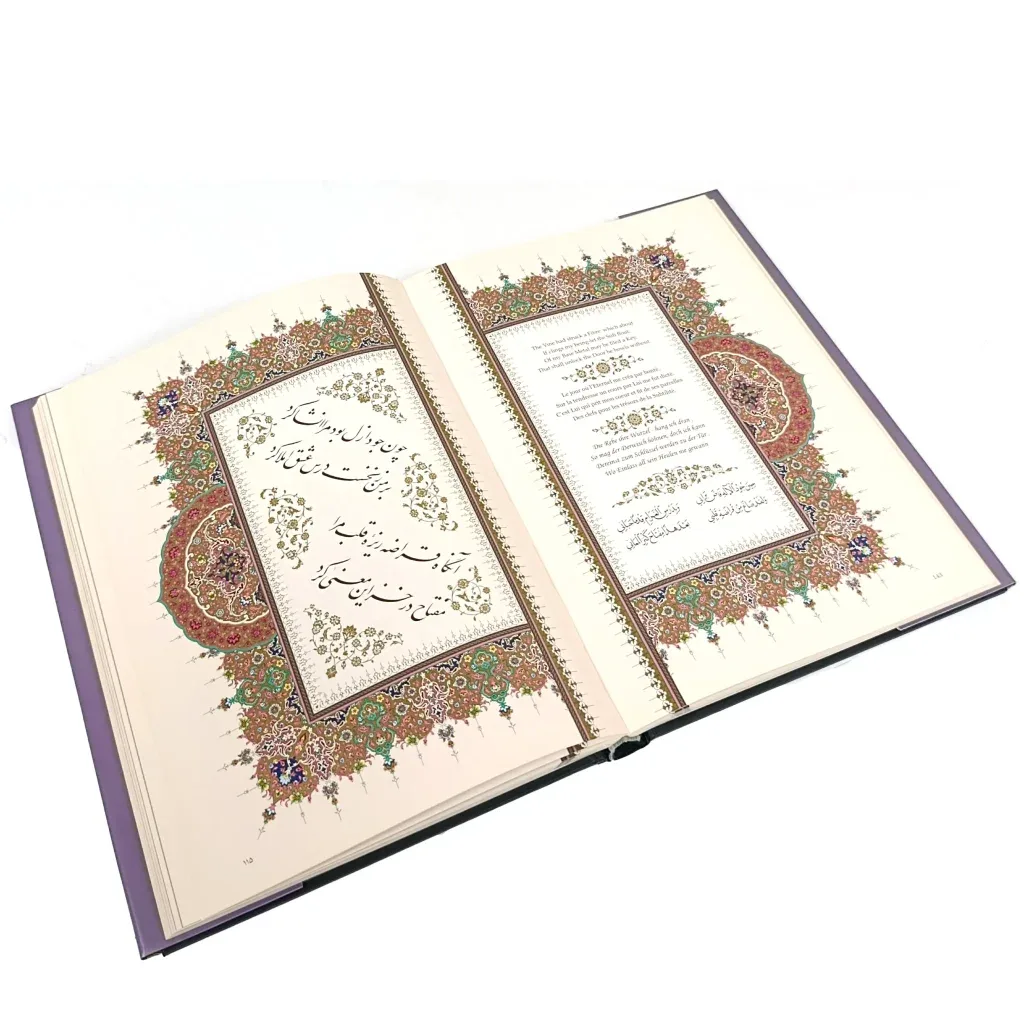 The Vine had struck a Fibre: which about
If clings my being let the Sufi flout;
Of my Base Metal may be filed a Key,
That shall unlock the Door he howls without
Le jour où l'Eternel me créa par bonté,
Sur la tendresse un cours par Lui me fut dicté.
C'est Lui qui prit mon coeur et fit de ses parcelles
Des clefs pour les trésors de la Subtilité.
Die Rebe ihre Wurzel - hang ich dran
So mag der Derwisch höhnen, doch ich kann
Dereinst zum Schlüssel werden zu der Tür
Wo Einlass all sein Heulen nie gewann
چون جود ازل بود مرا انشا کرد
بر من ز نخست درس عشق املا کرد
آنگاه قراضه ریزه قلب مرا
مفتاح در خزاین معنی کرد
۱۱۵